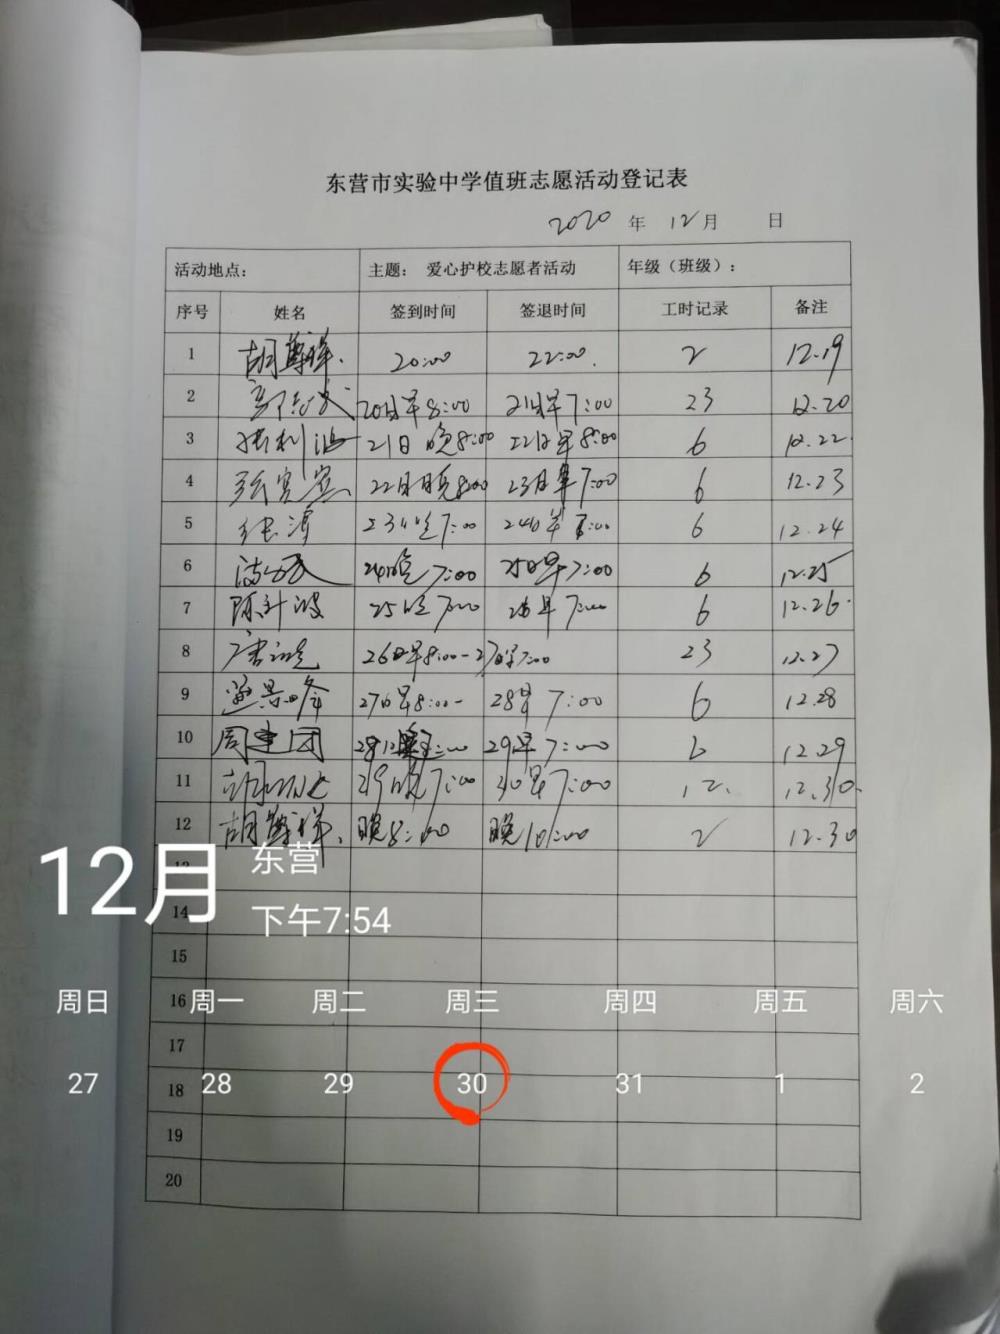 东营市实验中学值班志愿活动登记表
2020 年 12月 日
活动地点： 主题： 爱心护校志愿者活动 年级（班级）：
序号 姓名 签到时间 签退时间 工时记录 备注
1 胡尊祥 20:00 22:00. 2 12.19
2 20日早8:00 21日早7:00 23 12.20
3 21日晚8:00 22日早8:00 6 12.22
4 张宾宾 22日晚8:00 23日早7:00 6 12.23
5 张涛 23日晚7:00 24日早 6 12.24
6 24晚7:00 25日早7:00 6 12.25
7 陈升波 25晚7:00 26早7:00 6 12.26.
8 26日早8:00-27日早7:00 23 12.27
9 27日早8:00- 28早7:00 6 12.28
10 周建团 29早7:00 6 12.29
11 29晚7:00 30早7:00 12. 12.30.
12 胡尊祥. 晚8:00 晚10:00 2 12.30
13
14
15
16
17
18
19
20
12月 东营
下午7:54
周日 周一 周二 周三 周四 周五 周六
27 28 29 30 31 1 2